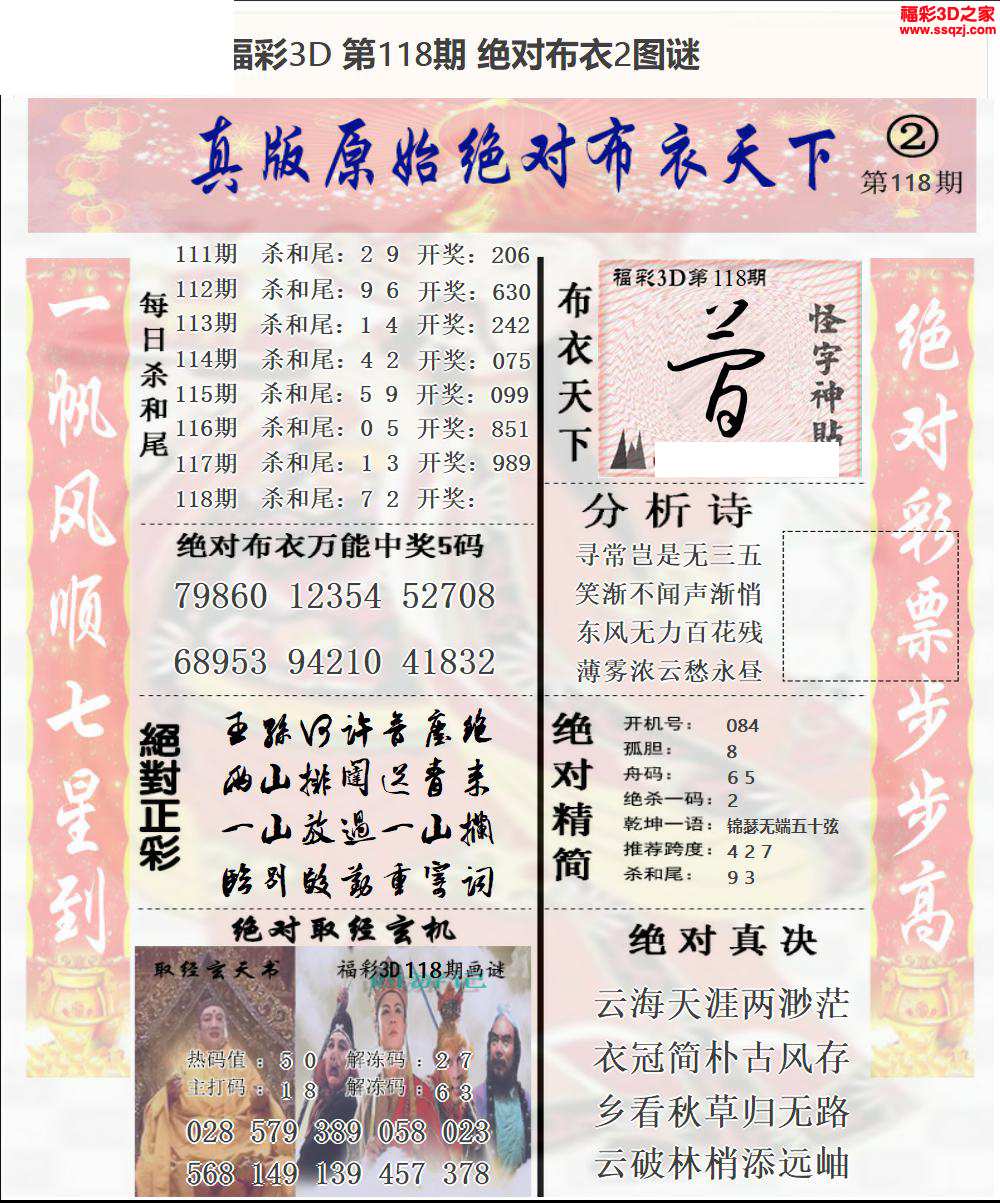 福彩3D之家
www.ssqzj.com
福彩3D 第118期 绝对布衣2图谜
真版原始绝对布衣天下
②
第118期
一帆风顺七星到
每日杀和尾
111期 杀和尾：2 9 开奖：206
112期 杀和尾：9 6 开奖：630
113期 杀和尾：1 4 开奖：242
114期 杀和尾：4 2 开奖：075
115期 杀和尾：5 9 开奖：099
116期 杀和尾：0 5 开奖：851
117期 杀和尾：1 3 开奖：989
118期 杀和尾：7 2 开奖：
绝对布衣万能中奖5码
79860 12354 52708
68953 94210 41832
絕對正彩
王孙何许音尘绝
两山排闼送青来
一山放過一山攔
临别殷勤重寄词
绝对取经玄机
取经玄天书
福彩3D118期画谜
热码值：5 0 解冻码：2 7
主打码：1 8 解冻码：6 3
028 579 389 058 023
568 149 139 457 378
布衣天下
福彩3D第118期
怪字神贴
分析诗
寻常岂是无三五
笑渐不闻声渐悄
东风无力百花残
薄雾浓云愁永昼
绝对精简
开机号：084
孤胆：8
舟码：6 5
绝杀一码：2
乾坤一语：锦瑟无端五十弦
推荐跨度：4 2 7
杀和尾：9 3
绝对真决
云海天涯两渺茫
衣冠简朴古风存
乡看秋草归无路
云破林梢添远岫
绝对彩票步步高